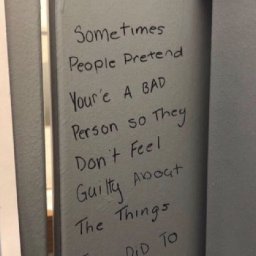 Sometimes
People Pretend
Your'e A BAD
Person so They
Don't Feel
Guilty About
The Things
DiD TO